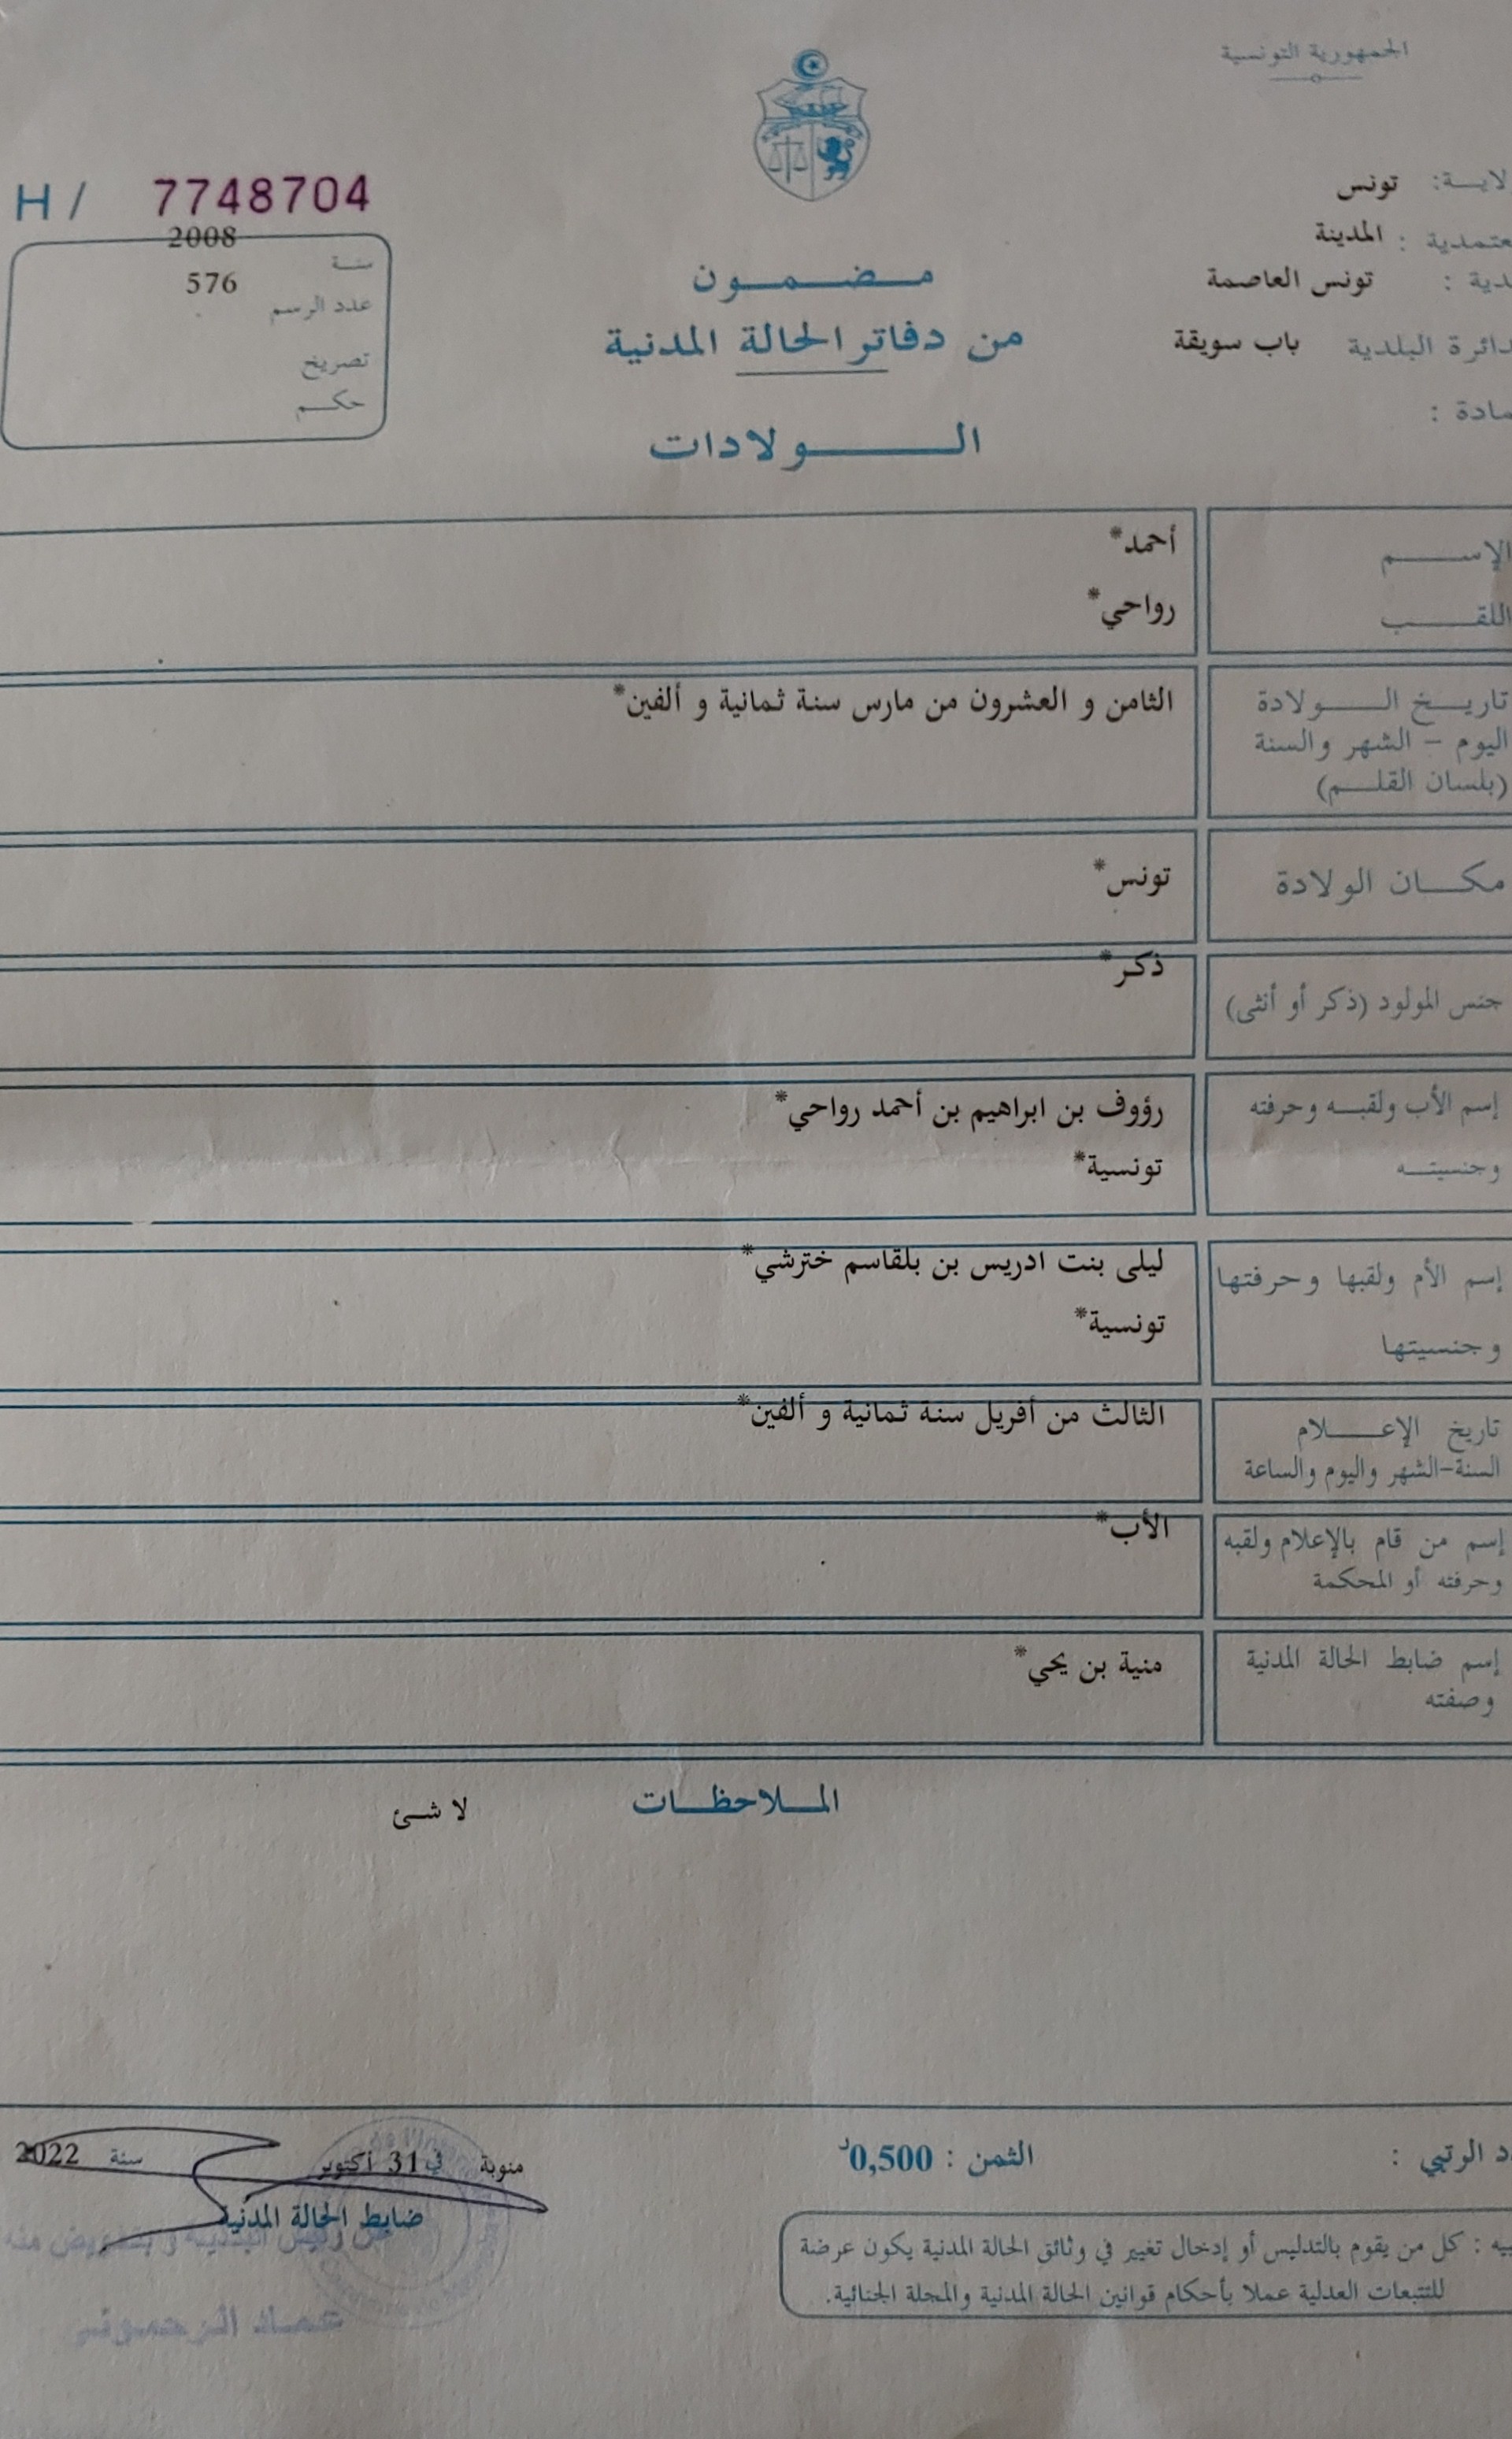 الجمهورية التونسية
لايـــة: تونس
عتمدية : المدينة
دية : تونس العاصمة
دائرة البلدية باب سويقة
مادة :
H / 7748704
سنة 2008
عدد الرسم 576
تصريح
حكم
مضمون
من دفاتر الحالة المدنية
الولادات
الإسم أحمد*
اللقب رواحي*
تاريخ الولادة الثامن و العشرون من مارس سنة ثمانية و ألفين*
اليوم – الشهر والسنة
(بلسان القلم)
مكان الولادة تونس*
جنس المولود (ذكر أو أنثى) ذكر*
إسم الأب ولقبه وحرفته رؤوف بن ابراهيم بن أحمد رواحي*
وجنسيته تونسية*
إسم الأم ولقبها وحرفتها ليلى بنت ادريس بن بلقاسم خترشي*
وجنسيتها تونسية*
تاريخ الإعلام الثالث من أفريل سنة ثمانية و ألفين*
السنة-الشهر واليوم والساعة
إسم من قام بالإعلام ولقبه الأب*
وحرفته أو المحكمة
إسم ضابط الحالة المدنية منية بن يحي*
وصفته
الملاحظات لا شئ
د الرتبي : الثمن : 0,500د
منوبة في 31 أكتوبر سنة 2022
ضابط الحالة المدنية
عن رئيس البلدية و بتفويض منه
عماد الرحموني
يه : كل من يقوم بالتدليس أو إدخال تغيير في وثائق الحالة المدنية يكون عرضة
للتتبعات العدلية عملا بأحكام قوانين الحالة المدنية والمجلة الجنائية.